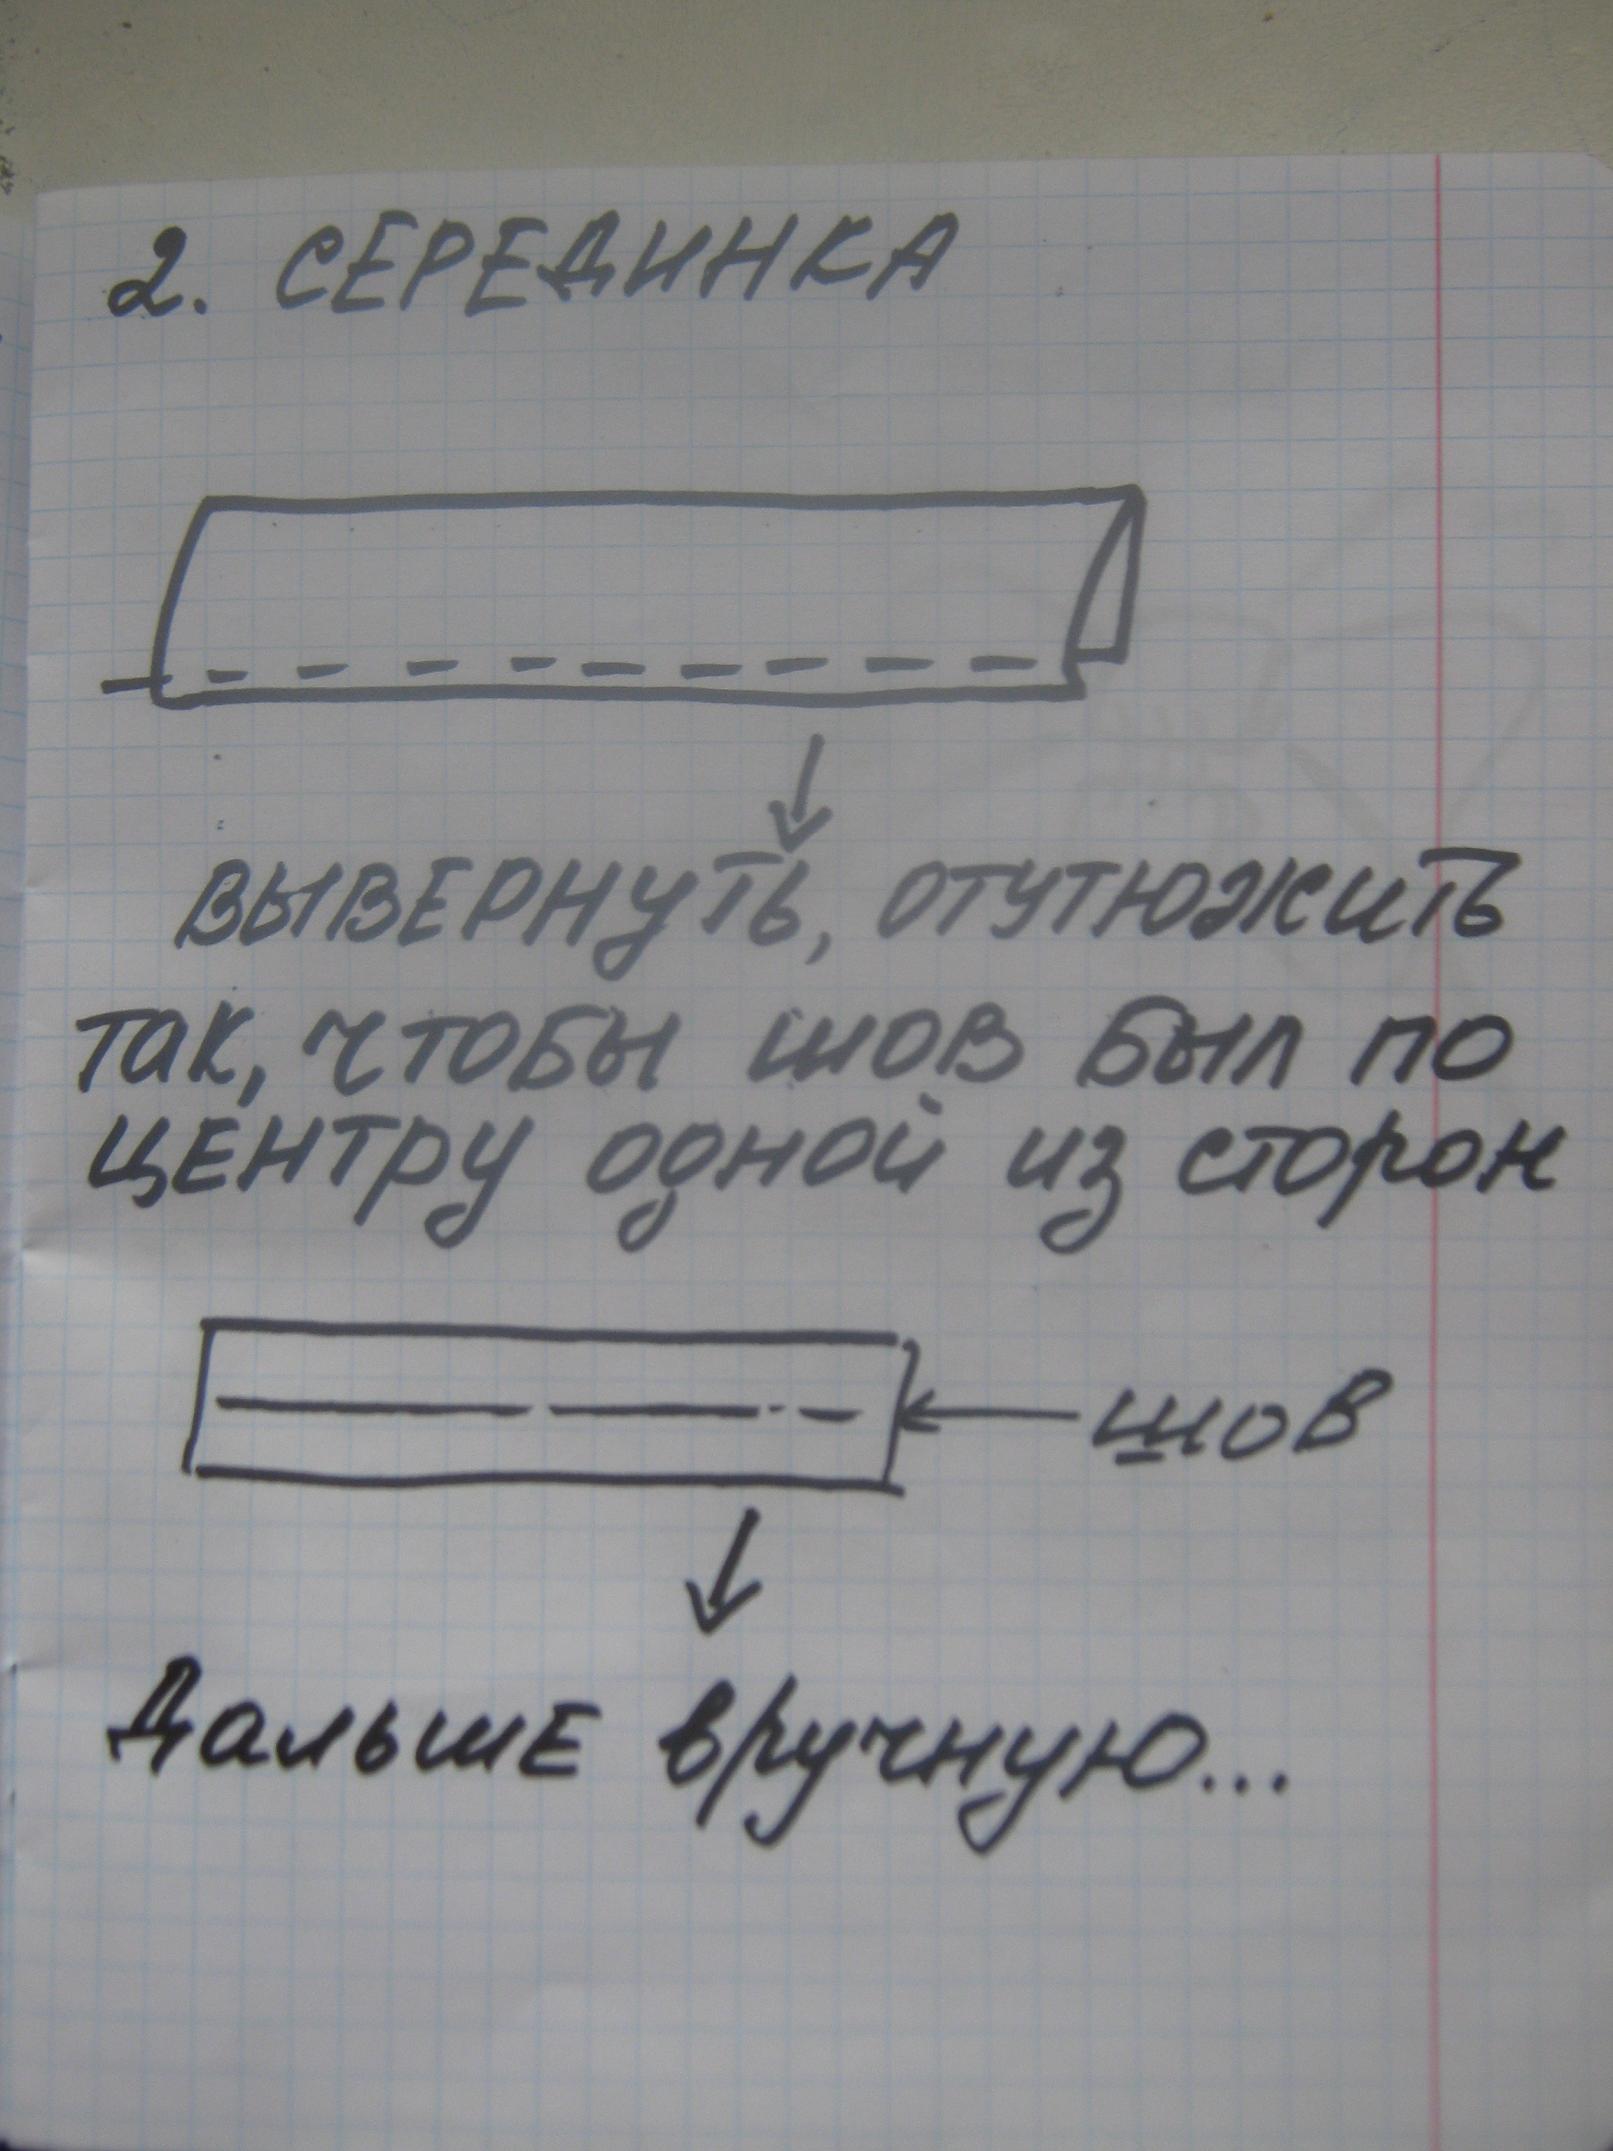 2. СЕРЕДИНКА
ВЫВЕРНУТЬ, ОТУТЮЖИТЬ
ТАК, ЧТОБЫ ШОВ БЫЛ ПО
ЦЕНТРУ ОДНОЙ ИЗ СТОРОН
ШОВ
ДАЛЬШЕ ВРУЧНУЮ...